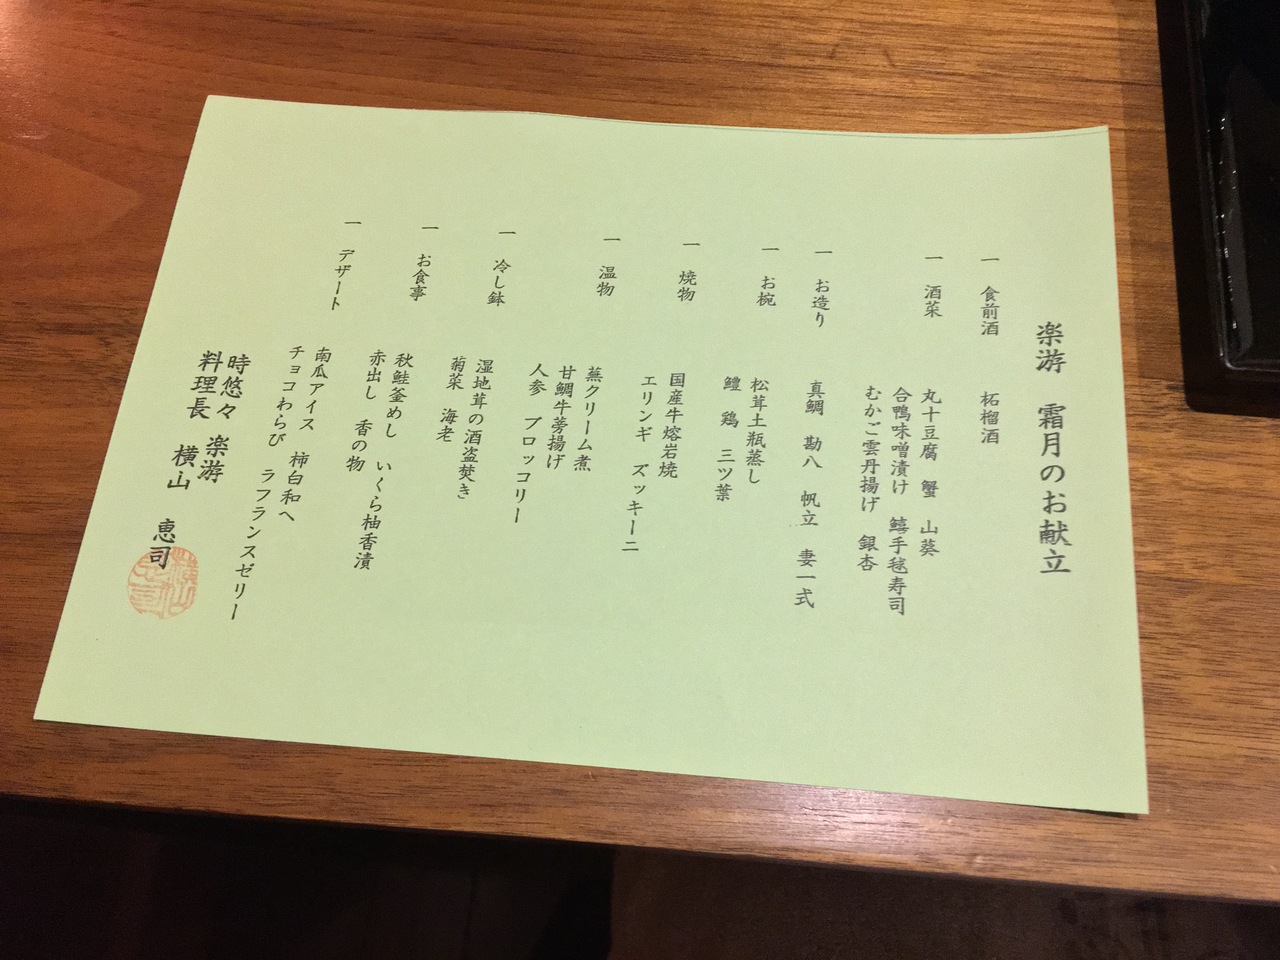 楽游 霜月のお献立
一 食前酒 柘榴酒
一 酒菜 丸十豆腐 蟹 山葵
合鴨味噌漬け 鱚手毬寿司
むかご雲丹揚げ 銀杏
一 お造り 真鯛 勘八 帆立 妻一式
一 お椀 松茸土瓶蒸し
鱧 鶏 三ツ葉
一 焼物 国産牛熔岩焼
エリンギ ズッキーニ
一 温物 蕪クリーム煮
甘鯛牛蒡揚げ
人参 ブロッコリー
一 冷し鉢 湿地茸の酒盗焚き
菊菜 海老
一 お食事 秋鮭釜めし いくら柚香漬
赤出し 香の物
一 デザート 南瓜アイス 柿白和へ
チョコわらび ラフランスゼリー
時悠々 楽游
料理長 横山 恵司